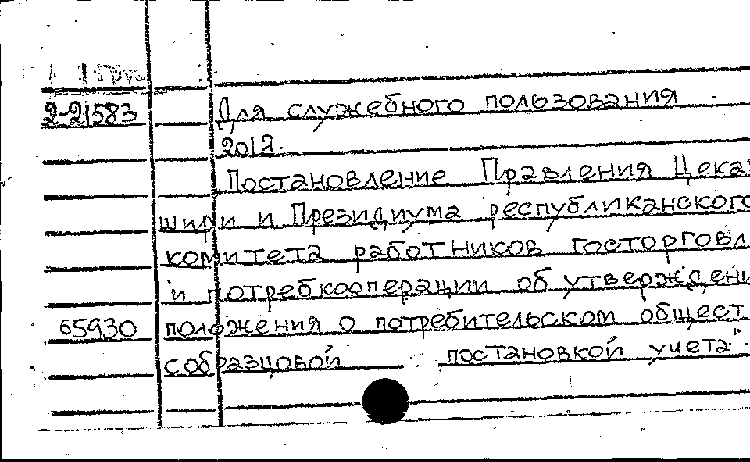 2-21583 Для служебного пользования
2012.
Постановление Правления Цека
шири и Президиума республиканского
комитета работников госторговл
и потребкооперации об утверждени
65930 положения о потребительском общест
собразцовой постановкой учета"